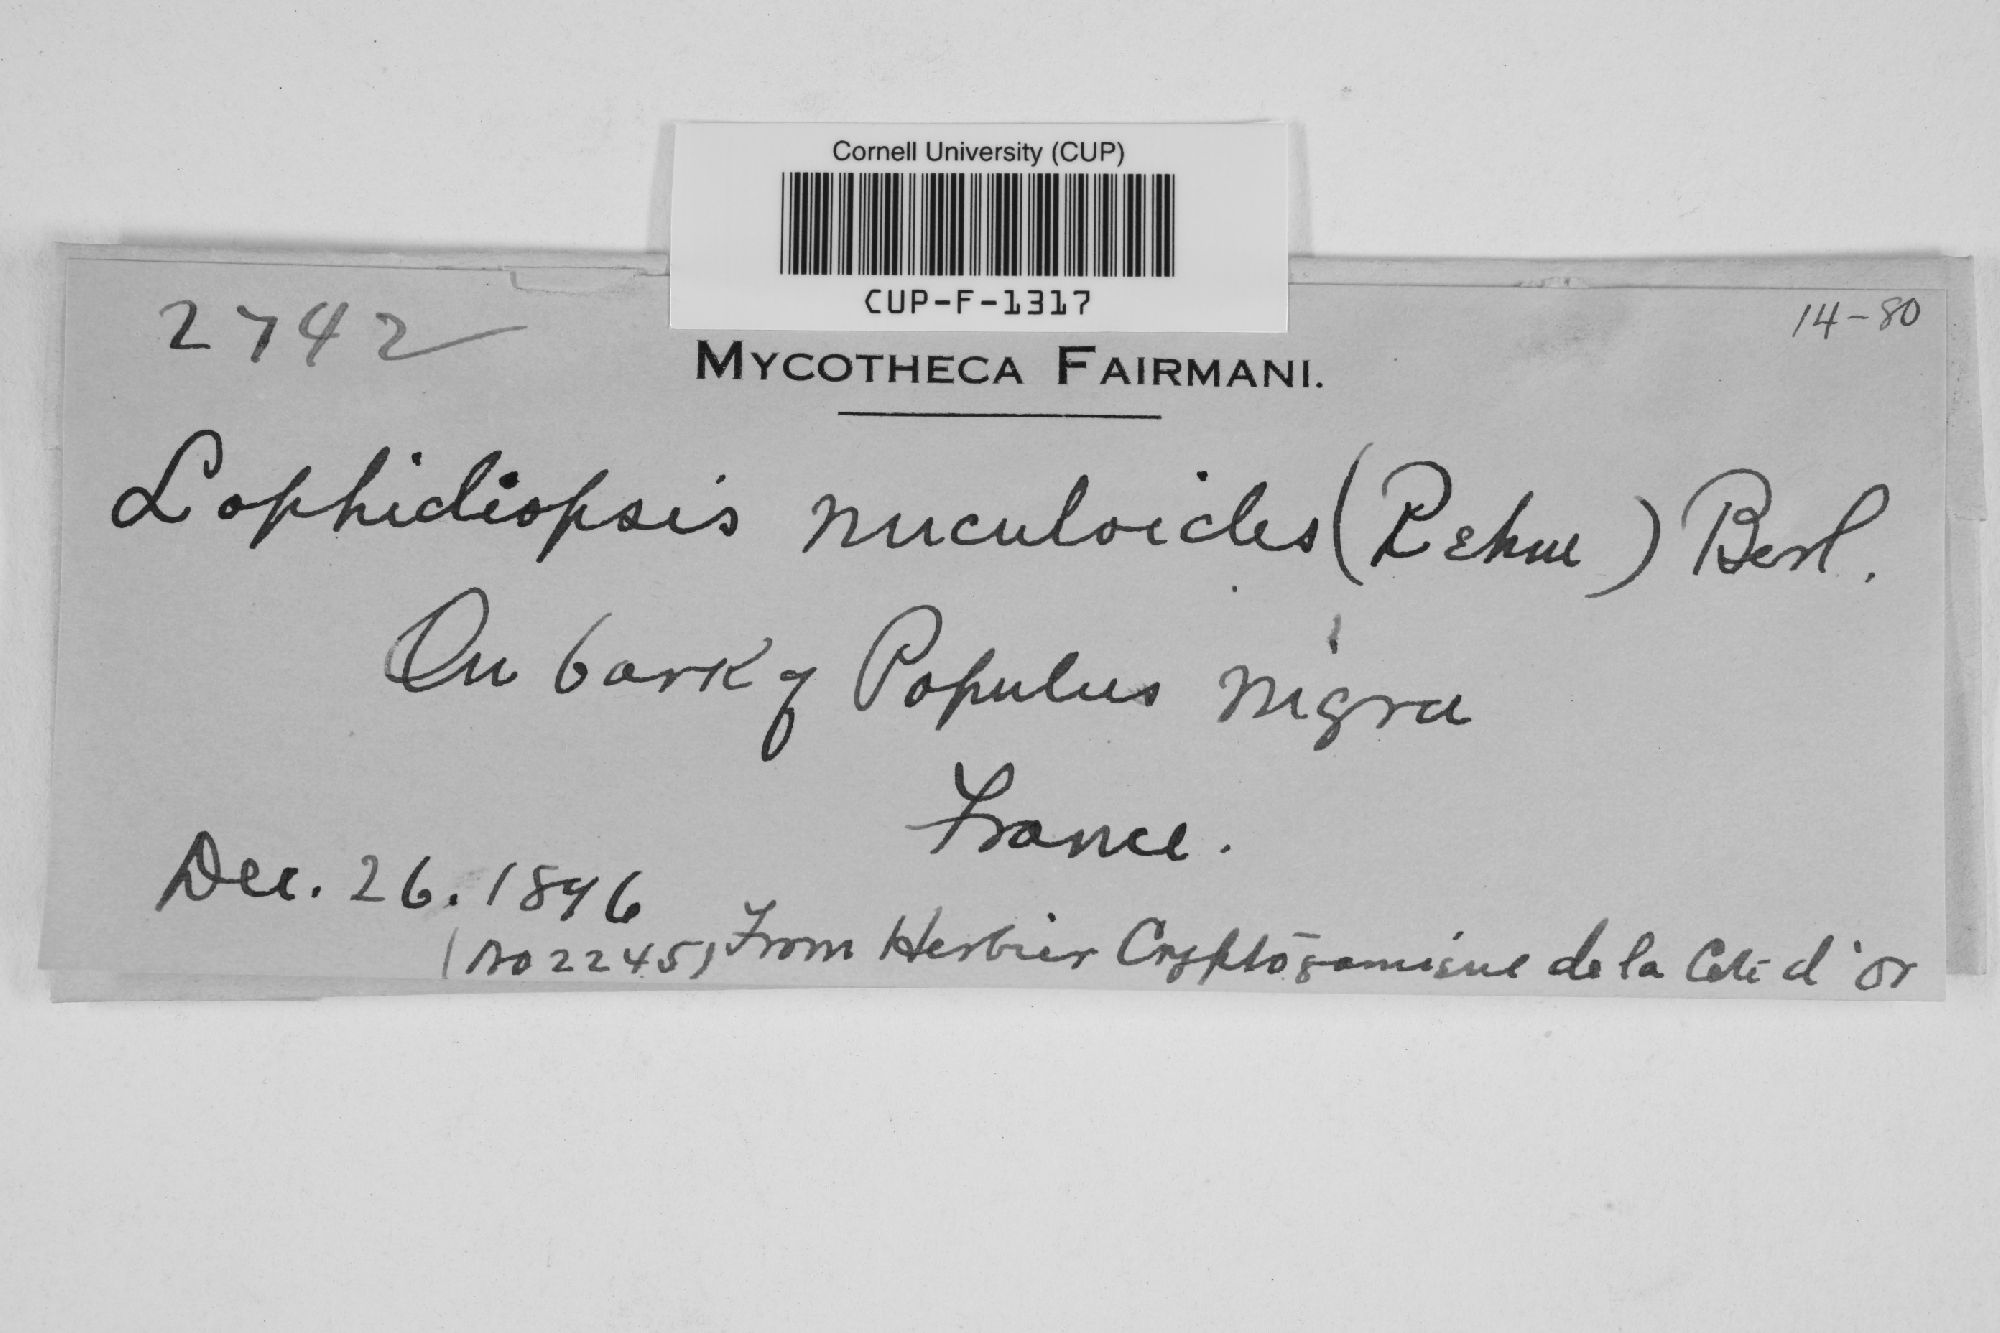 Cornell University (CUP)
CUP-F-1317
2742
14-80
MYCOTHECA FAIRMANI.
Lophidiopsis nuculoides (Rehm) Berl.
On bark of Populus nigra
France.
Dec. 26. 1896
(No 2245) From Herbier Cryptogamique de la Cote d'or